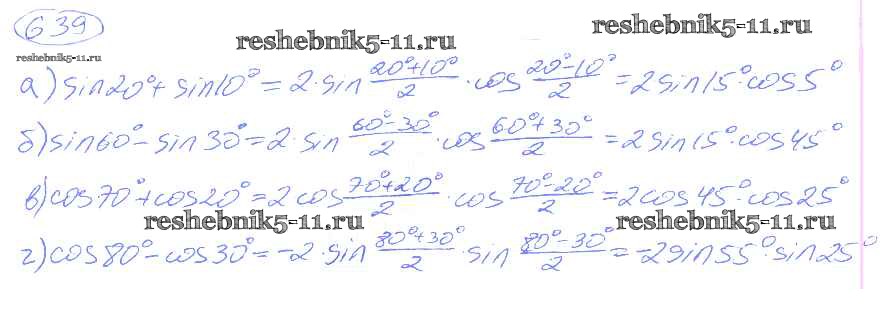 639
reshebnik5-11.ru
reshebnik5-11.ru
reshebnik5-11.ru
а) sin20°+ sin10° = 2·sin (20°+10°)/2 · cos (20°-10°)/2 = 2sin15°·cos5°
б) sin60°- sin30° = 2·sin (60°-30°)/2 · cos (60°+30°)/2 = 2sin15°·cos45°
в) cos70°+cos20° = 2cos (70°+20°)/2 · cos (70°-20°)/2 = 2cos45°·cos25°
reshebnik5-11.ru
reshebnik5-11.ru
г) cos80°-cos30° = -2·sin (80°+30°)/2 · sin (80°-30°)/2 = -2sin55°·sin25°